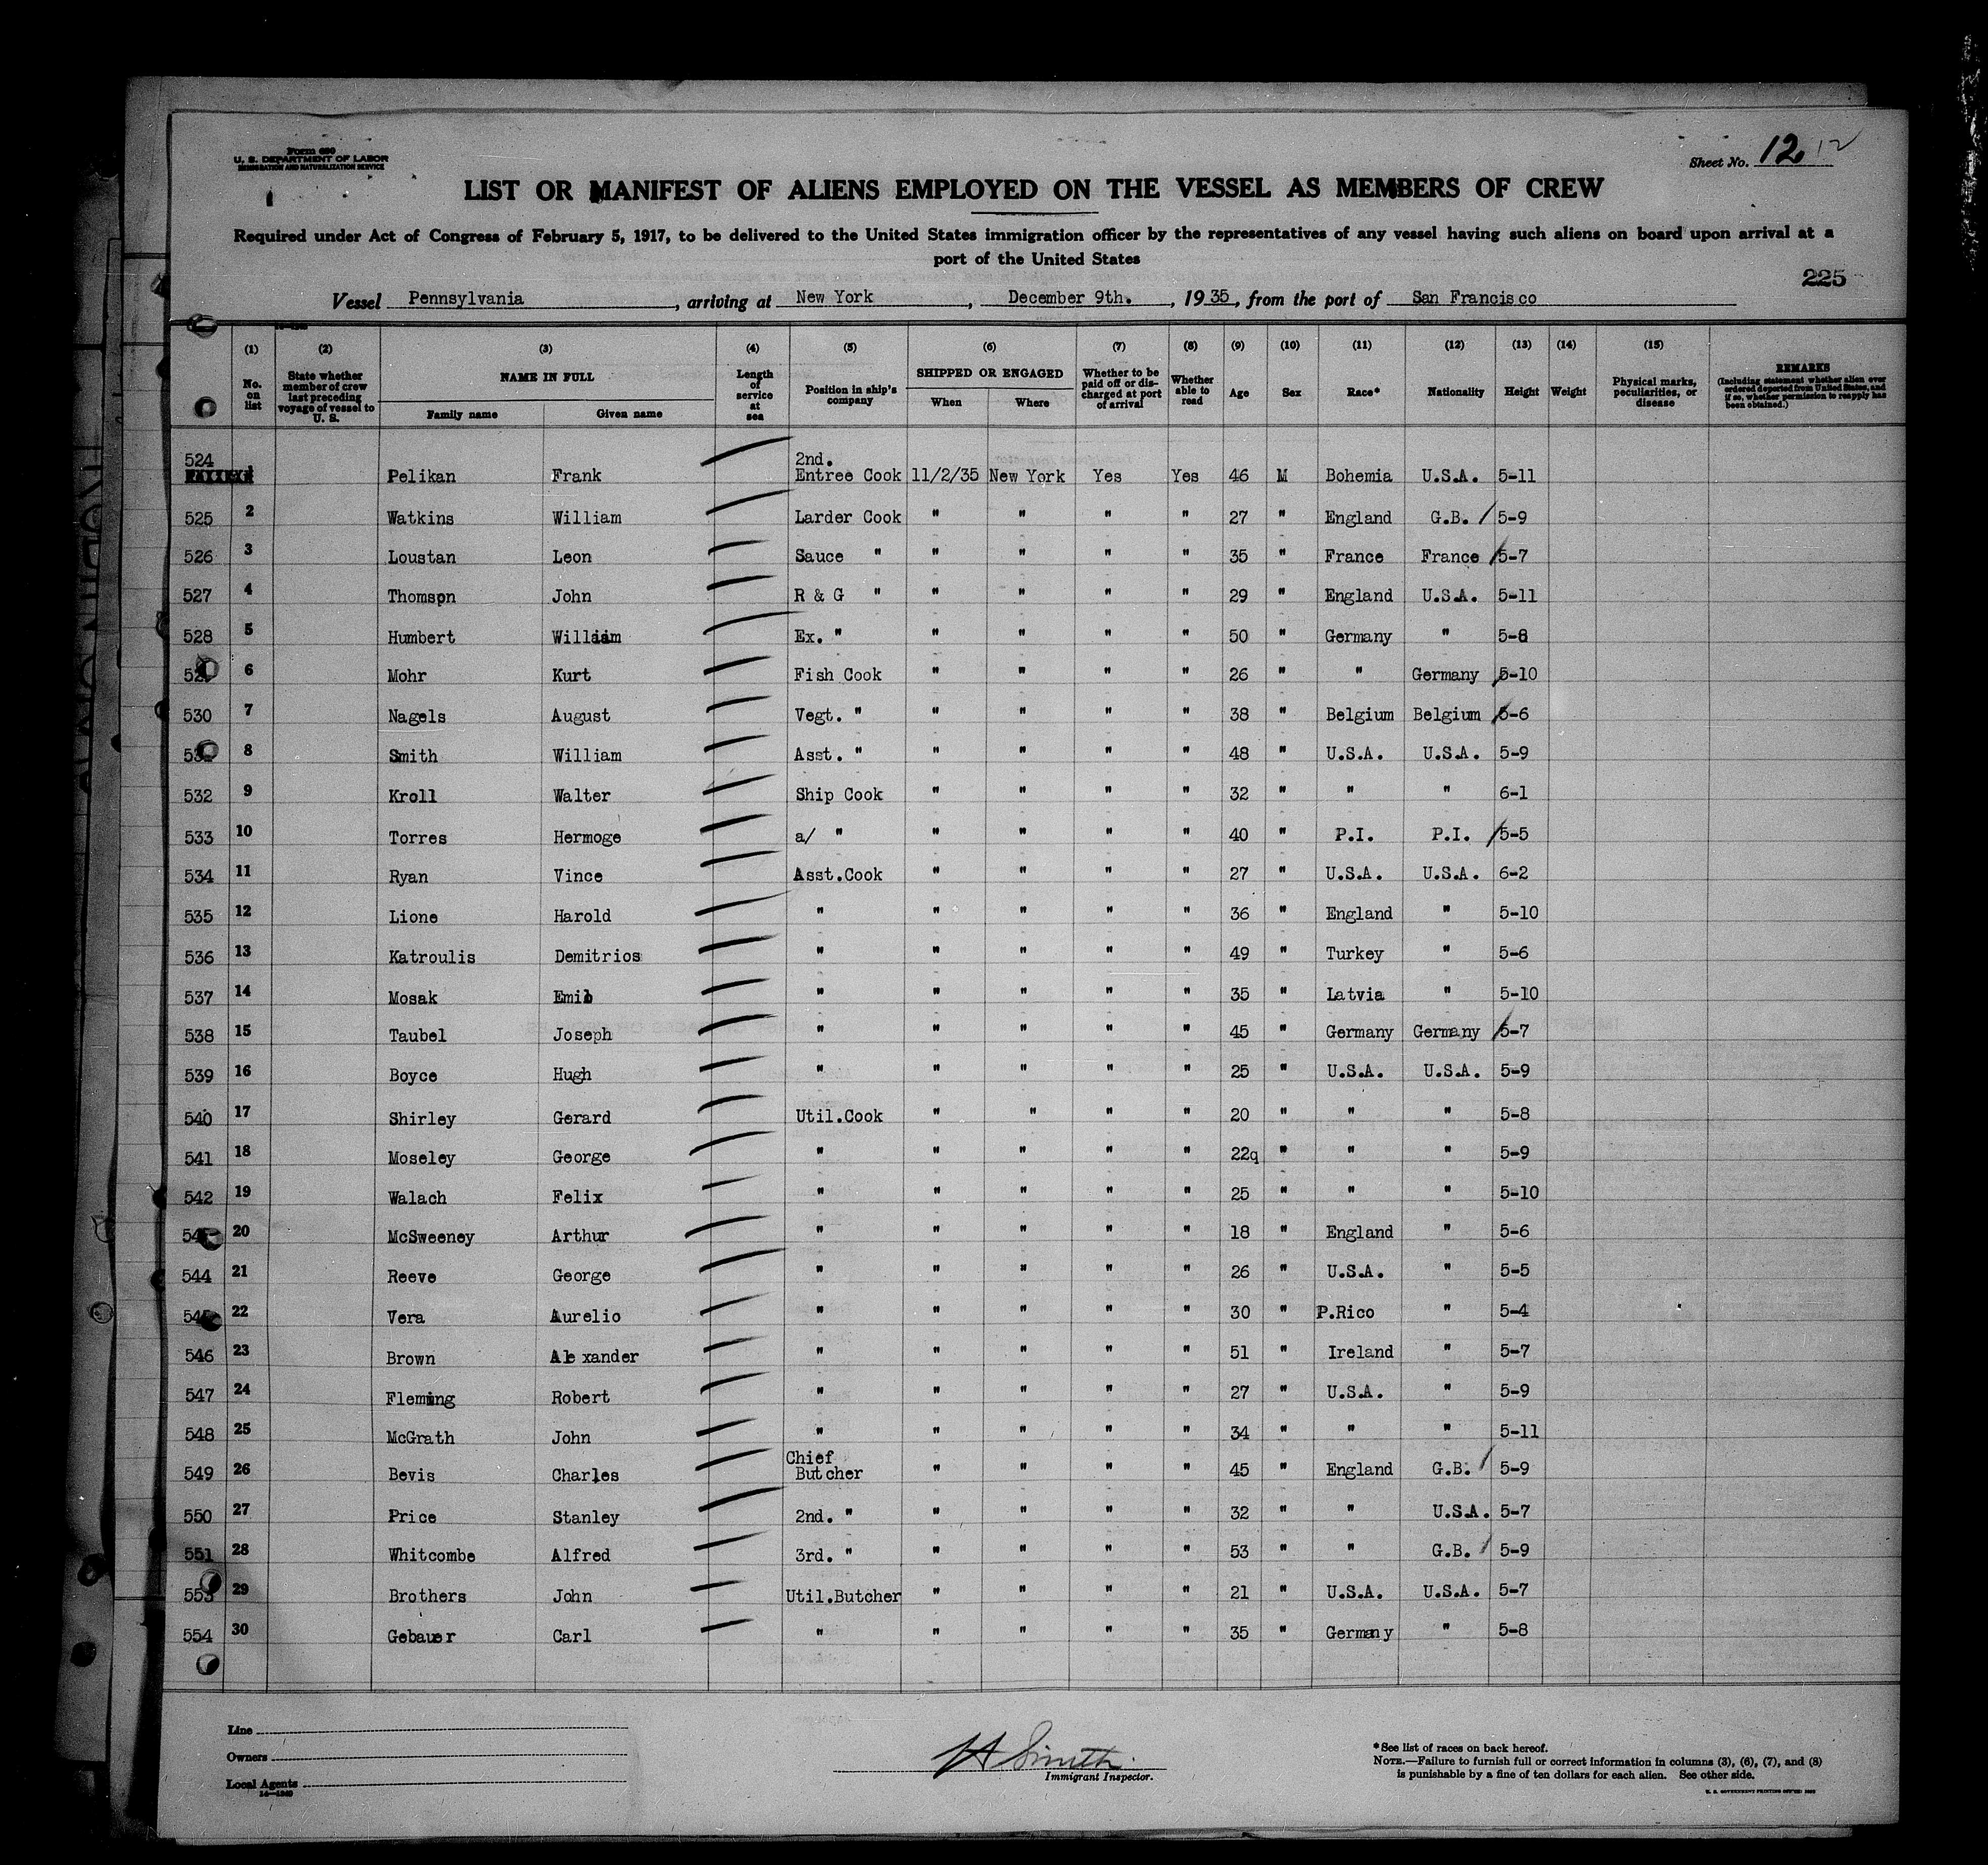 Form 680
U. S. DEPARTMENT OF LABOR
IMMIGRATION AND NATURALIZATION SERVICE
Sheet No. 12 12
LIST OR MANIFEST OF ALIENS EMPLOYED ON THE VESSEL AS MEMBERS OF CREW
Required under Act of Congress of February 5, 1917, to be delivered to the United States immigration officer by the representatives of any vessel having such aliens on board upon arrival at a
port of the United States
225
Vessel Pennsylvania, arriving at New York, December 9th., 1935, from the port of San Francisco
(1) (2) (3) (4) (5) (6) (7) (8) (9) (10) (11) (12) (13) (14) (15)
No. on list State whether member of crew last preceding voyage of vessel to U. S. NAME IN FULL Family name Given name Length of service at sea Position in ship's company SHIPPED OR ENGAGED When Where Whether to be paid off or discharged at port of arrival Whether able to read Age Sex Race* Nationality Height Weight Physical marks, peculiarities, or disease REMARKS (Including statement whether alien ever ordered deported from United States, and if so, whether permission to reapply has been obtained.)
524 1 Pelikan Frank 2nd. Entree Cook 11/2/35 New York Yes Yes 46 M Bohemia U.S.A. 5-11
525 2 Watkins William Larder Cook " " " " 27 " England G.B. / 5-9
526 3 Loustan Leon Sauce " " " " " 35 " France France / 5-7
527 4 Thomspn John R & G " " " " " 29 " England U.S.A. 5-11
528 5 Humbert William Ex. " " " " " 50 " Germany " 5-8
6 Mohr Kurt Fish Cook " " " " 26 " " Germany / 5-10
530 7 Nagels August Vegt. " " " " " 38 " Belgium Belgium / 5-6
8 Smith William Asst. " " " " " 48 " U.S.A. U.S.A. 5-9
532 9 Kroll Walter Ship Cook " " " " 32 " " " 6-1
533 10 Torres Hermoge a/ " " " " " 40 " P.I. P.I. / 5-5
534 11 Ryan Vince Asst.Cook " " " " 27 " U.S.A. U.S.A. 6-2
535 12 Lione Harold " " " " " 36 " England " 5-10
536 13 Katroulis Demitrios " " " " " 49 " Turkey " 5-6
537 14 Mosak Emil " " " " " 35 " Latvia " 5-10
538 15 Taubel Joseph " " " " " 45 " Germany Germany / 5-7
539 16 Boyce Hugh " " " " " 25 " U.S.A. U.S.A. 5-9
540 17 Shirley Gerard Util.Cook " " " " 20 " " " 5-8
541 18 Moseley George " " " " " 22q " " " 5-9
542 19 Walach Felix " " " " " 25 " " " 5-10
20 McSweeney Arthur " " " " " 18 " England " 5-6
544 21 Reeve George " " " " " 26 " U.S.A. " 5-5
22 Vera Aurelio " " " " " 30 " P.Rico " 5-4
546 23 Brown Alexander " " " " " 51 " Ireland " 5-7
547 24 Fleming Robert " " " " " 27 " U.S.A. " 5-9
548 25 McGrath John " " " " " 34 " " " 5-11
549 26 Bevis Charles Chief Butcher " " " " 45 " England G.B. / 5-9
550 27 Price Stanley 2nd. " " " " " 32 " " U.S.A. 5-7
551 28 Whitcombe Alfred 3rd. " " " " " 53 " " G.B. / 5-9
553 29 Brothers John Util.Butcher " " " " 21 " U.S.A. U.S.A. 5-7
554 30 Gebauer Carl " " " " " 35 " Germany " 5-8
Line
Owners
Local Agents
14—1240
H Smith
Immigrant Inspector.
*See list of races on back hereof.
NOTE.—Failure to furnish full or correct information in columns (3), (6), (7), and (8)
is punishable by a fine of ten dollars for each alien. See other side.
U. S. GOVERNMENT PRINTING OFFICE: